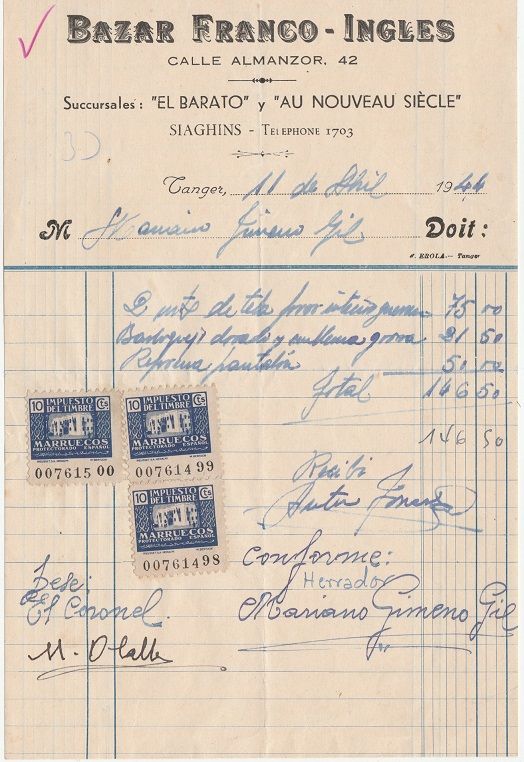 BAZAR FRANCO - INGLES
CALLE ALMANZOR, 42
Succursales : "EL BARATO" y "AU NOUVEAU SIÈCLE"
SIAGHINS - TELEPHONE 1703
Tanger, 11 de Abril 1944
M Mariano Gimeno Gil Doit :
EROLA.— Tanger
2 de tela 75 00
dorado y emblema gorra 21 50
Reforma pantalón 50 00
Total 146 50
146 50
Recibí
10 IMPUESTO DEL TIMBRE Cs.
MARRUECOS
PROTECTORADO ESPAÑOL
00761500
10 IMPUESTO DEL TIMBRE Cs.
MARRUECOS
PROTECTORADO ESPAÑOL
00761499
10 IMPUESTO DEL TIMBRE Cs.
MARRUECOS
PROTECTORADO ESPAÑOL
00761498
Conforme:
Herrador
Mariano Gimeno Gil
Dese:
El Coronel